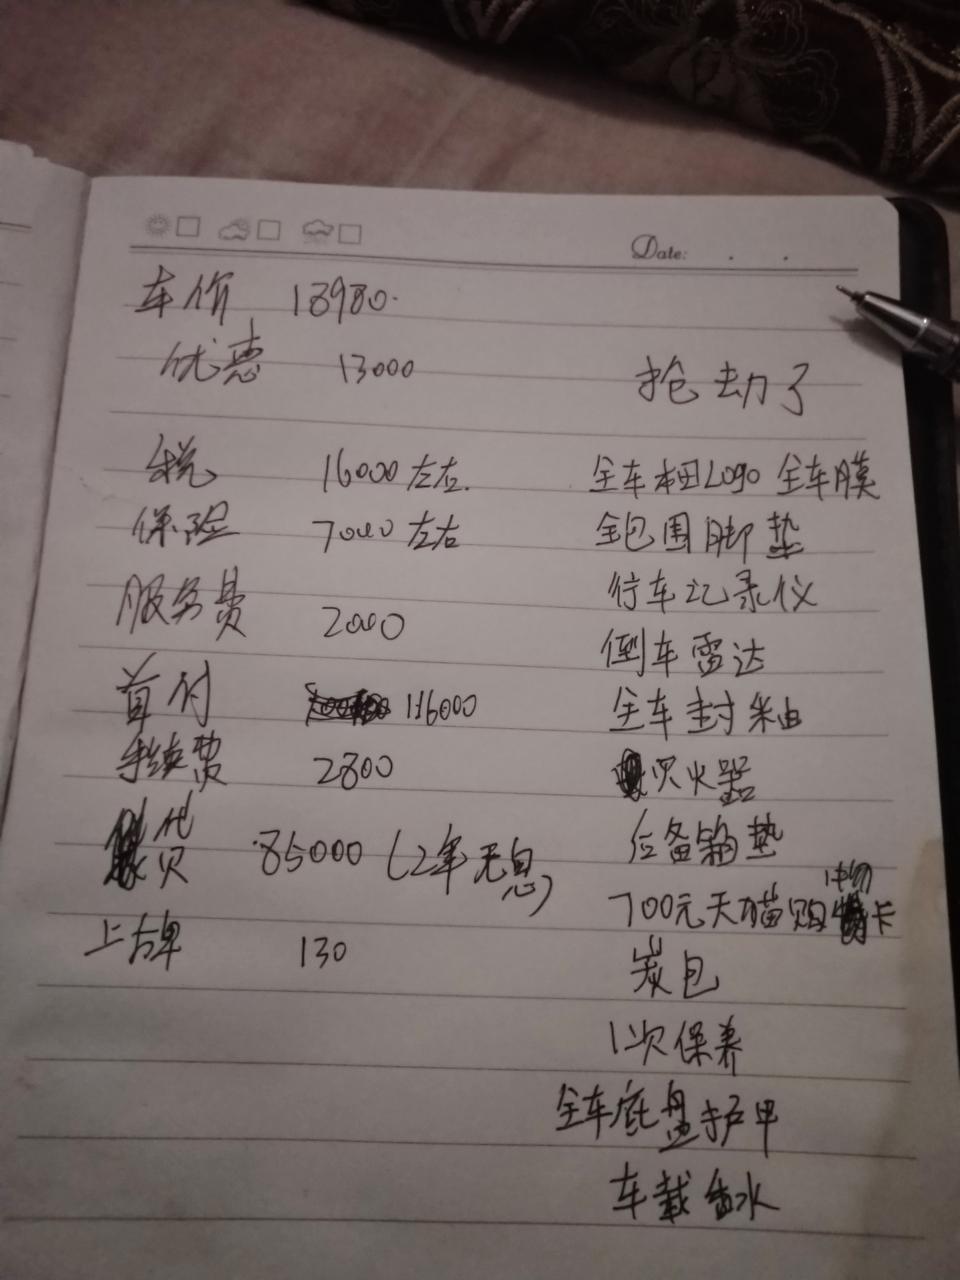 Date: . .
车价 18980.
优惠 13000
抢劫了
税 16000左右.
全车相Logo 全车膜
保险 7000左右
全包围脚垫
服务费 2000
行车记录仪
倒车雷达
首付 116000
全车封釉
手续费 2800
灭火器
贷 85000 (2年无息)
后备箱垫
700元天猫购物卡
上牌 130
炭包
1次保养
全车底盘护甲
车载香水